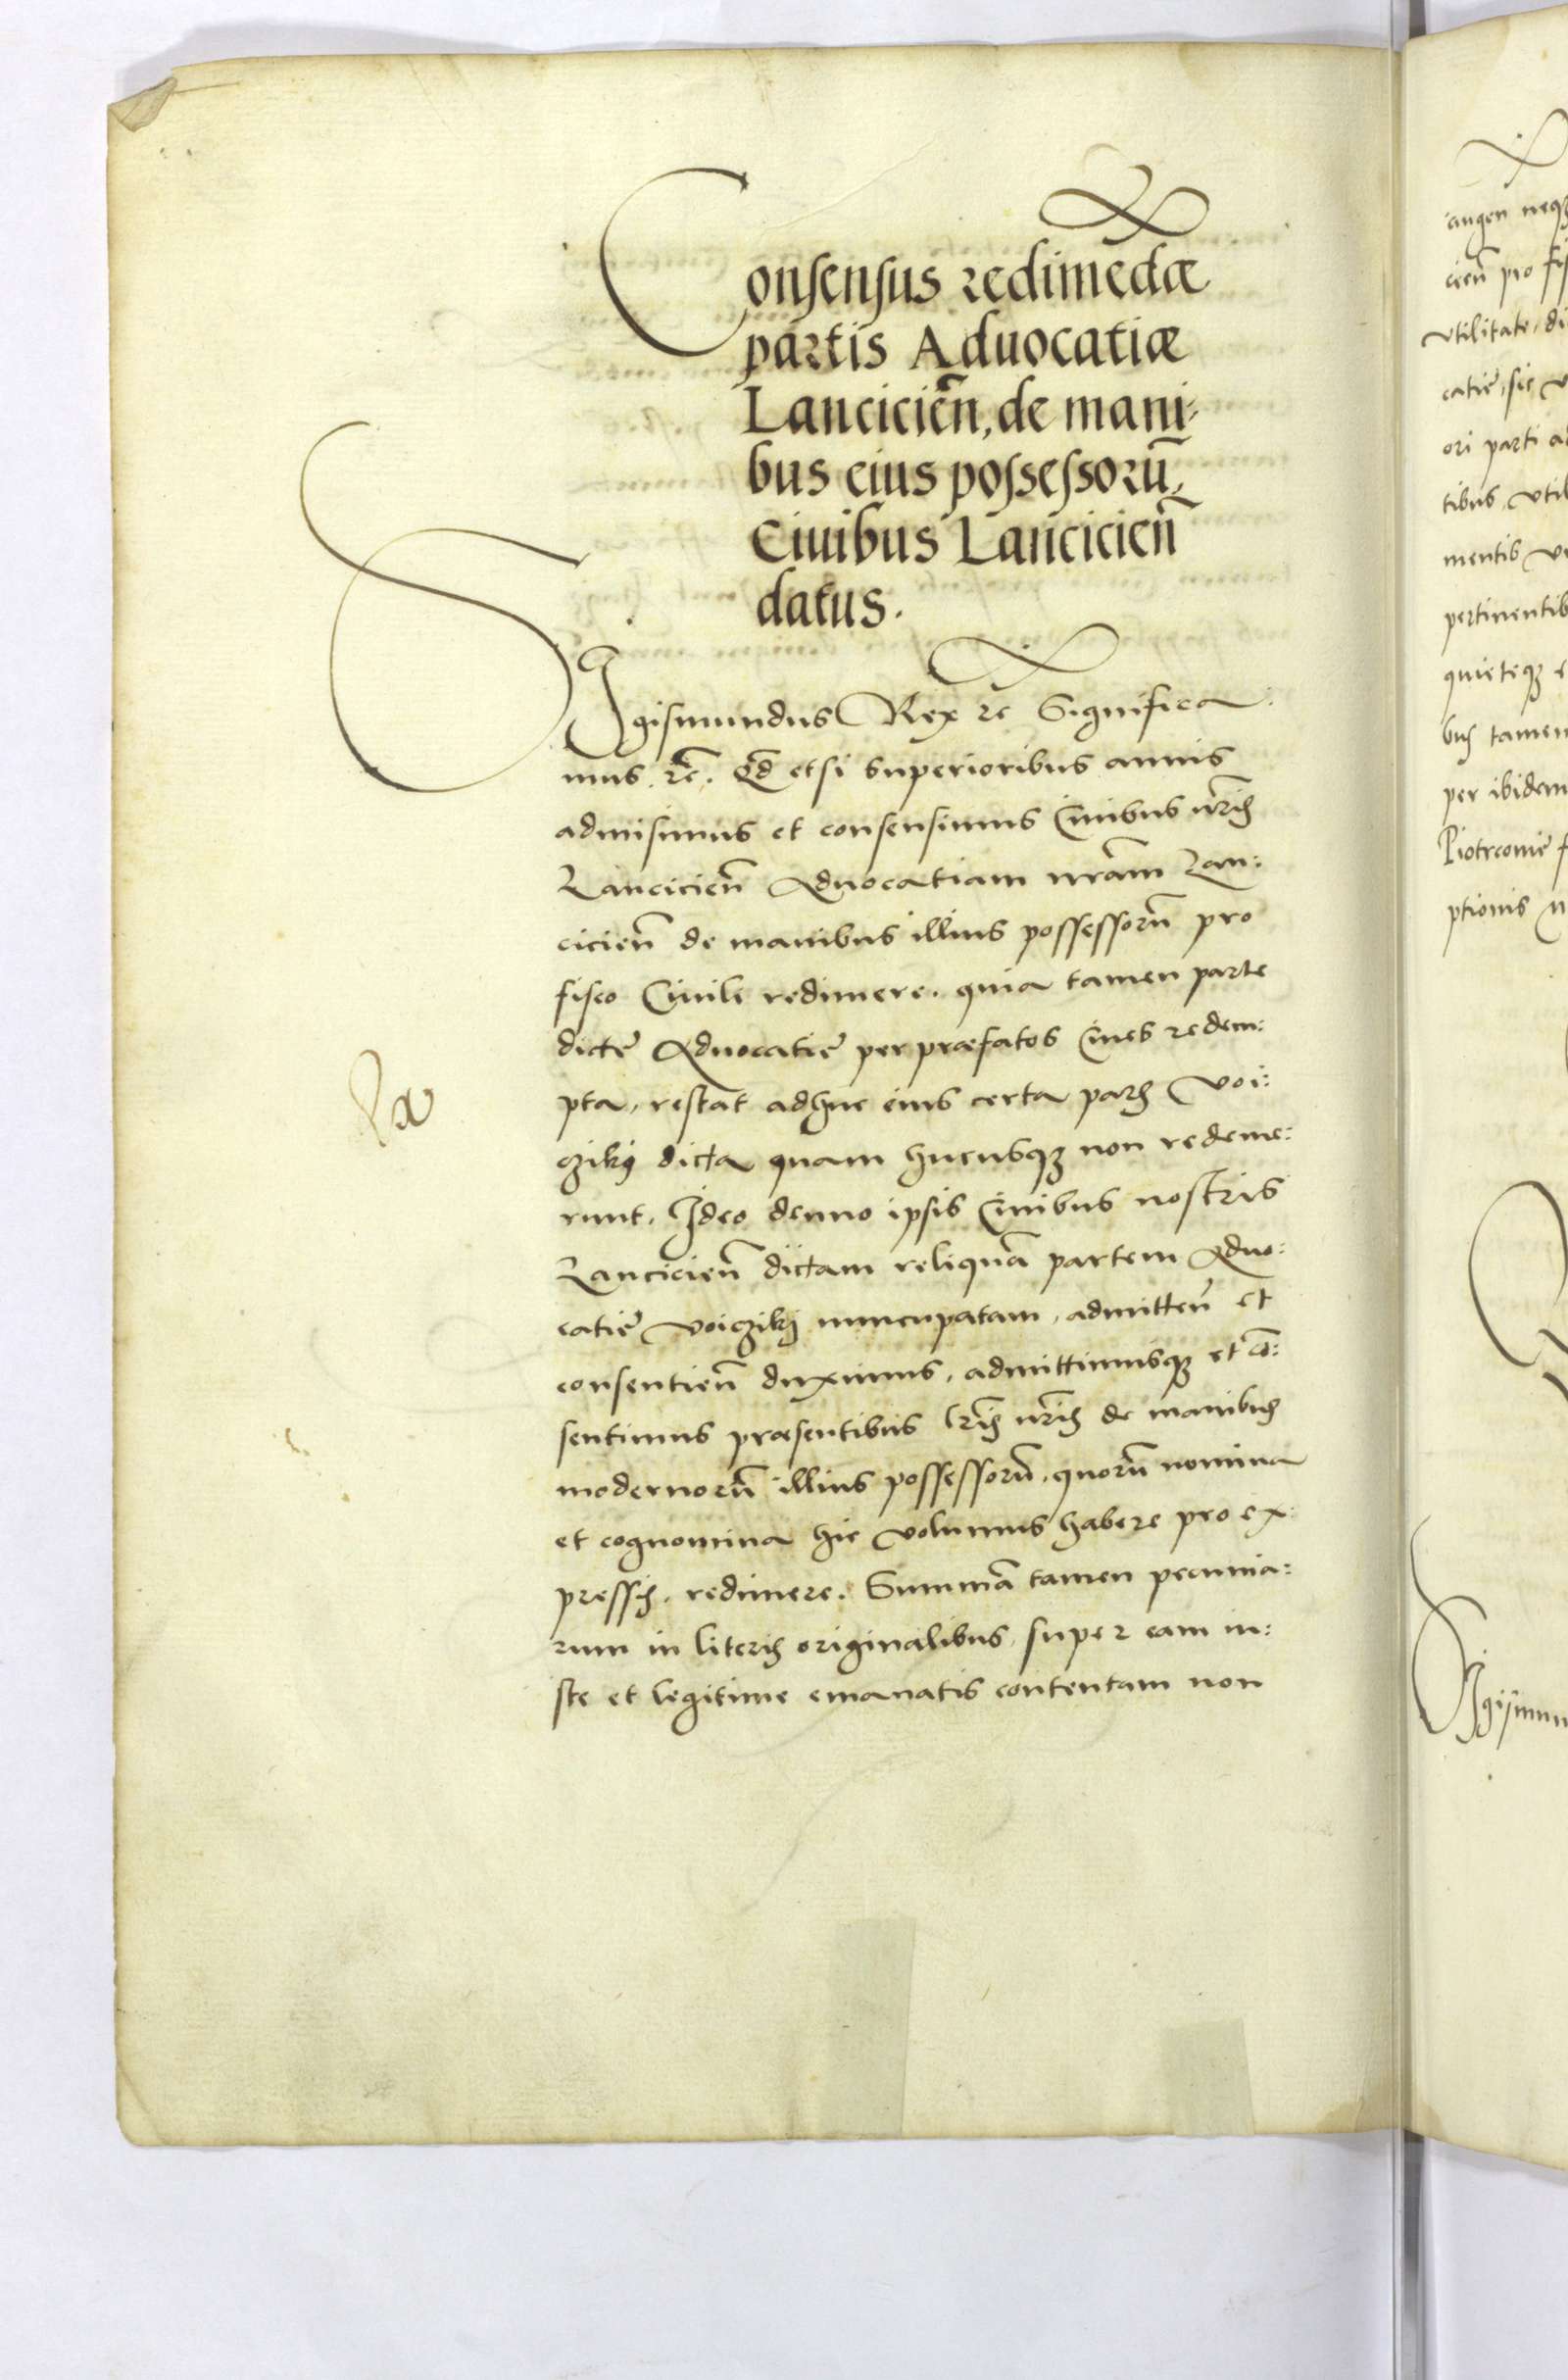 Consensus redimēdæ
partis Aduocatiæ
Lanciciēn, de mani-
bus eius possessorū,
Ciuibus Lancicień
datus.
Sigismundus Rex &c Significa
mus &c. Qd etsi superioribus annis
admisimus et consensimus Ciuibus nr̄is
Lancicień Aduocatiam nrām Lan:
cicień de manibus illius possessorū pro
fisco Ciuili redimere. quia tamen parte
dictę Aduocatię per præfatos Ciues redem:
pta, restat adhuc eius certa pars Voi:
czikÿ dicta quam hucusq3 non redeme:
runt. Ideo denuo ipsis Ciuibus nostris
Lancicień dictam reliquā partem Aduo:
catię Voiczikj nuncupatam, admitteń et
consentień duximus, admittimusq3 et cō:
sentimus præsentibus lr̄is nr̄is de manibus
modernorū illius possessorū, quorū nomina
et cognomina hic volumus habere pro ex
pressis, redimere. Summā tamen pecunia:
rum in literis originalibus, super eam iu:
ste et legitime emanatis contentam non
augen neq3
cień pro
vtilitate, di
catię, sic
ori parti
tibus, vtil
mentis
pertinentib
quieteq3
bus tamen
per ibidem
Piotrcouię
ptionis